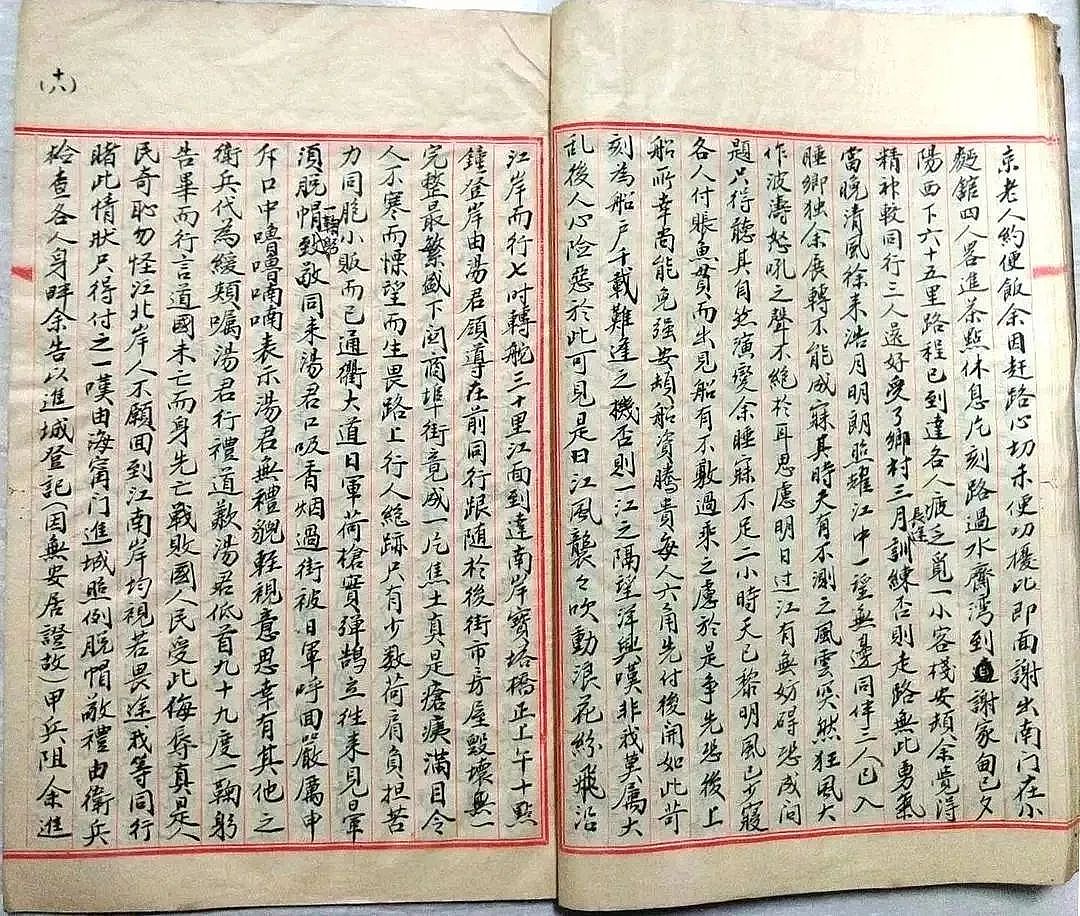 京老人約便飯余因赶路心切未便叨擾比即面謝出南门在小
麵館四人畧進茶點休息片刻路過水齊湾到謝家甸已夕
陽西下六十五里路程已到達各人疲乏覓一小客棧安頓余覺得
精神較同行三人还好受了鄉村三月長途訓練否則走路無此勇氣
當晚清風徐来浩月明朗照耀江中一望無邊同伴三人已入
睡鄉独余展轉不能成寐其時天有不測之風雲突然狂風大
作波濤怒吼之聲不絶於耳思慮明日过江有無妨碍恐成问
題只得聽其自然演變余睡寐不足二小時天已黎明風已少寢
各人付賬魚貫而出見船有不敷過乘之虞於是争先恐後上
船所幸尚能免强安頓船資騰貴每人六角先付後開如此苛
刻為船户千載難逢之機否則一江之隔望洋興嘆非我莫属大
乱後人心险惡於此可見是日江风襲々吹動浪花紛飛沿
江岸而行七时轉舵三十里江面到達南岸寶塔橋正上午十點
鐘登岸由湯君領導在前同行跟随於後街市房屋毀壞無一
完整最繁盛下関商埠街竟成一片焦土真是瘡痍滿目令
人不寒而慄望而生畏路上行人絶跡只有少数荷肩負担苦
力同胞小販而已通衢大道日軍荷槍實彈鵠立往来見日軍
須脱帽一鞠躬到敬同来湯君口吸香烟過街被日軍呼面嚴厲申
斥口中嚕嚕喃喃表示湯君無禮貌輕視意思幸有其他之
衛兵代為緩頰嘱湯君行禮道歉湯君低首九十九度一鞠躬
告畢而行言道國未亡而身先亡戰敗國人民受此侮辱真是人
民奇恥勿怪江北岸人不願回到江南岸均視若畏途我等同行
睹此情狀只得付之一嘆由海甯门進城照例脱帽敬禮由衛兵
检查各人身畔余告以進城登記(因無安居證故)甲兵阻余進
(十六)